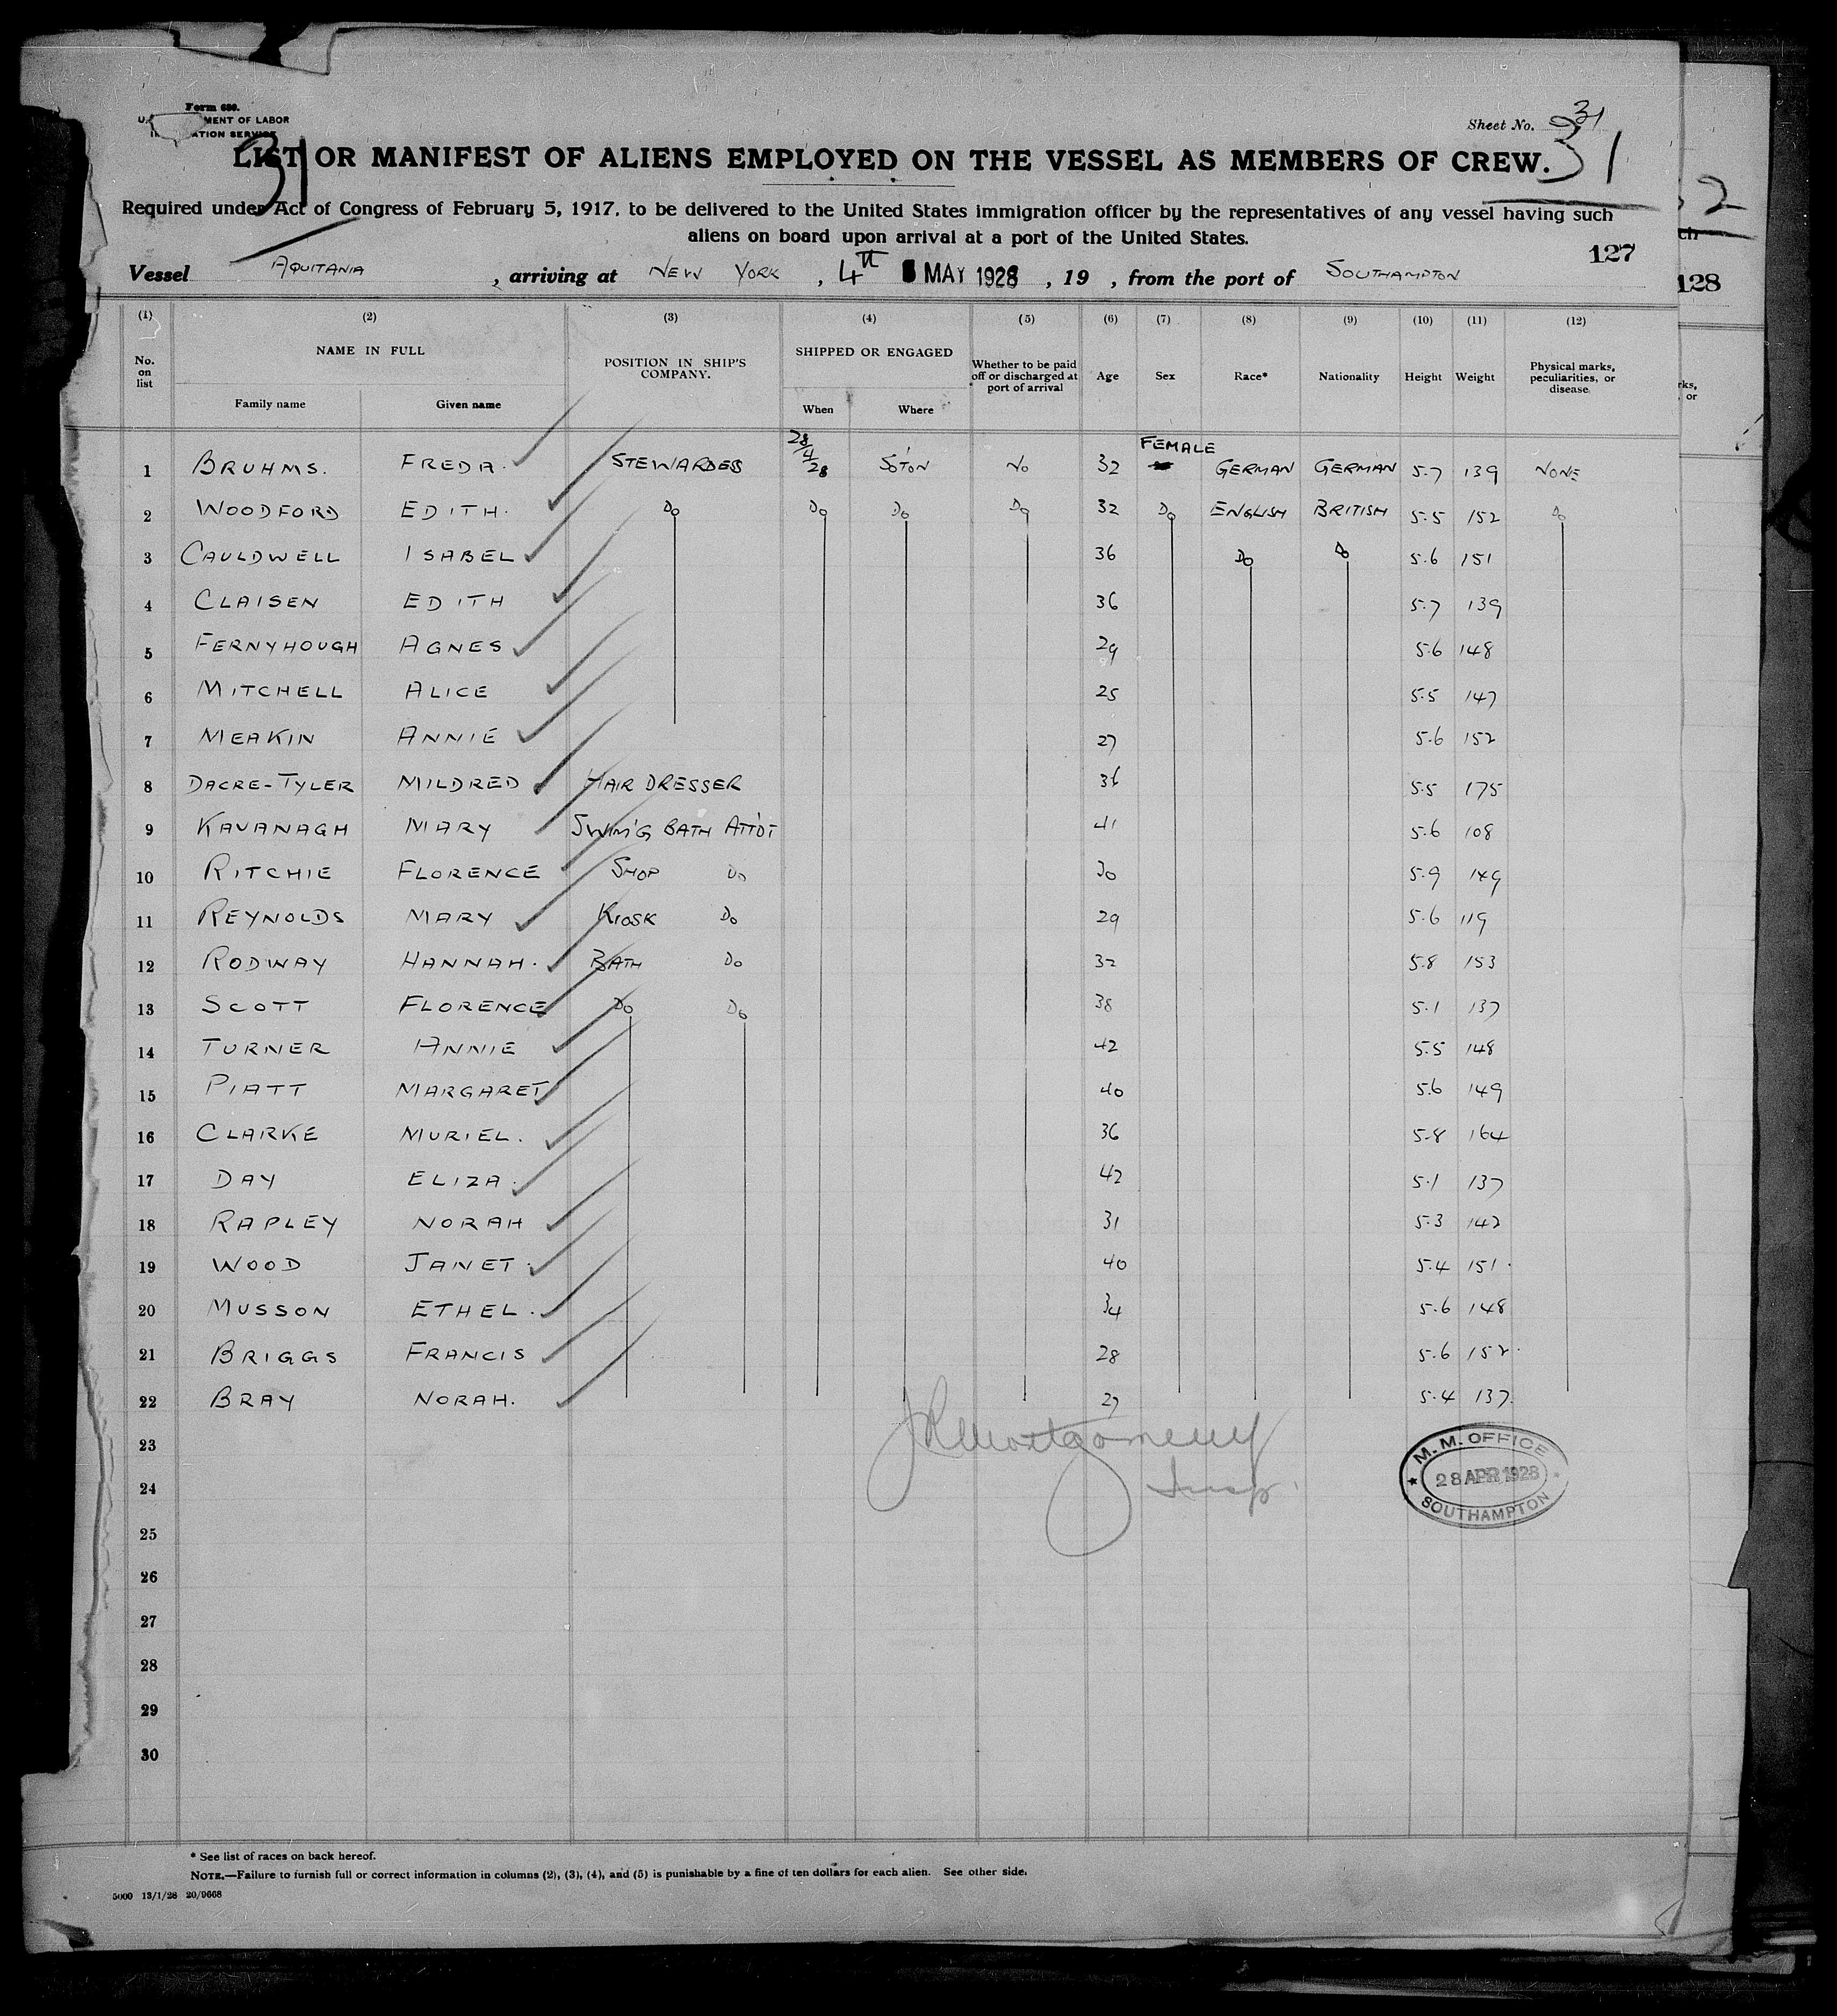 Form 680.
U. MENT OF LABOR
ATION SERVICE
Sheet No. 31
31 31
LIST OR MANIFEST OF ALIENS EMPLOYED ON THE VESSEL AS MEMBERS OF CREW.
Required under Act of Congress of February 5, 1917, to be delivered to the United States immigration officer by the representatives of any vessel having such
aliens on board upon arrival at a port of the United States.
127
Vessel AQUITANIA, arriving at NEW YORK, 4th MAY 1928, 19 , from the port of SOUTHAMPTON
128
(1) (2) (3) (4) (5) (6) (7) (8) (9) (10) (11) (12)
No. on list NAME IN FULL POSITION IN SHIP'S COMPANY. SHIPPED OR ENGAGED Whether to be paid off or discharged at port of arrival Age Sex Race* Nationality Height Weight Physical marks, peculiarities, or disease.
Family name Given name When Where
1 BRUHMS. FREDA. STEWARDESS 28/4/28 SOTON NO 32 FEMALE GERMAN GERMAN 5.7 139 NONE
2 WOODFORD EDITH. DO DO DO DO 32 DO ENGLISH BRITISH 5.5 152 DO
3 CAULDWELL ISABEL 36 DO DO 5.6 151
4 CLAISEN EDITH 36 5.7 139
5 FERNYHOUGH AGNES 29 5.6 148
6 MITCHELL ALICE 25 5.5 147
7 MEAKIN ANNIE 27 5.6 152
8 DACRE-TYLER MILDRED HAIR DRESSER 36 5.5 175
9 KAVANAGH MARY SWIM'G BATH ATT'DT 41 5.6 108
10 RITCHIE FLORENCE SHOP DO 30 5.9 149
11 REYNOLDS MARY KIOSK DO 29 5.6 119
12 RODWAY HANNAH. BATH DO 32 5.8 153
13 SCOTT FLORENCE DO DO 38 5.1 137
14 TURNER ANNIE 42 5.5 148
15 PIATT MARGARET 40 5.6 149
16 CLARKE MURIEL. 36 5.8 164
17 DAY ELIZA. 42 5.1 137
18 RAPLEY NORAH 31 5.3 142
19 WOOD JANET. 40 5.4 151.
20 MUSSON ETHEL. 34 5.6 148
21 BRIGGS FRANCIS 28 5.6 152.
22 BRAY NORAH. 27 5.4 137.
23
24
25
26
27
28
29
30
JRMontgomery
Insp.
M. M. OFFICE
28 APR 1928
SOUTHAMPTON
* See list of races on back hereof.
NOTE.—Failure to furnish full or correct information in columns (2), (3), (4), and (5) is punishable by a fine of ten dollars for each alien. See other side.
5000 13/1/28 20/9668